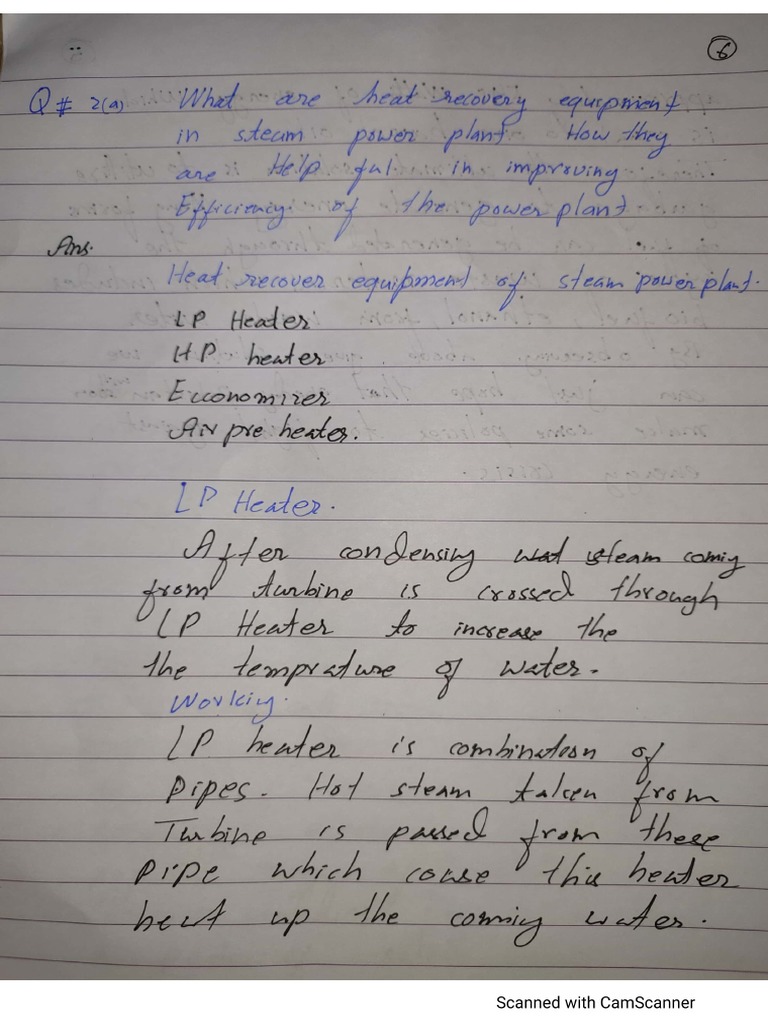 6
Q # 2(a) What are heat recovery equipment
in steam power plant How they
are Help ful in improving
Efficiency of the power plant
Ans.
Heat recover equipment of steam power plant.
LP Heater
HP heater
Economizer
Air pre heater.
LP Heater.
After condensing steam comig
from turbine is crossed through
LP Heater to increase the
the temprature of water.
Workig.
LP heater is combination of
pipes. Hot steam taken from
Turbine is passed from these
pipe which couse this heater
heat up the comig water.
Scanned with CamScanner